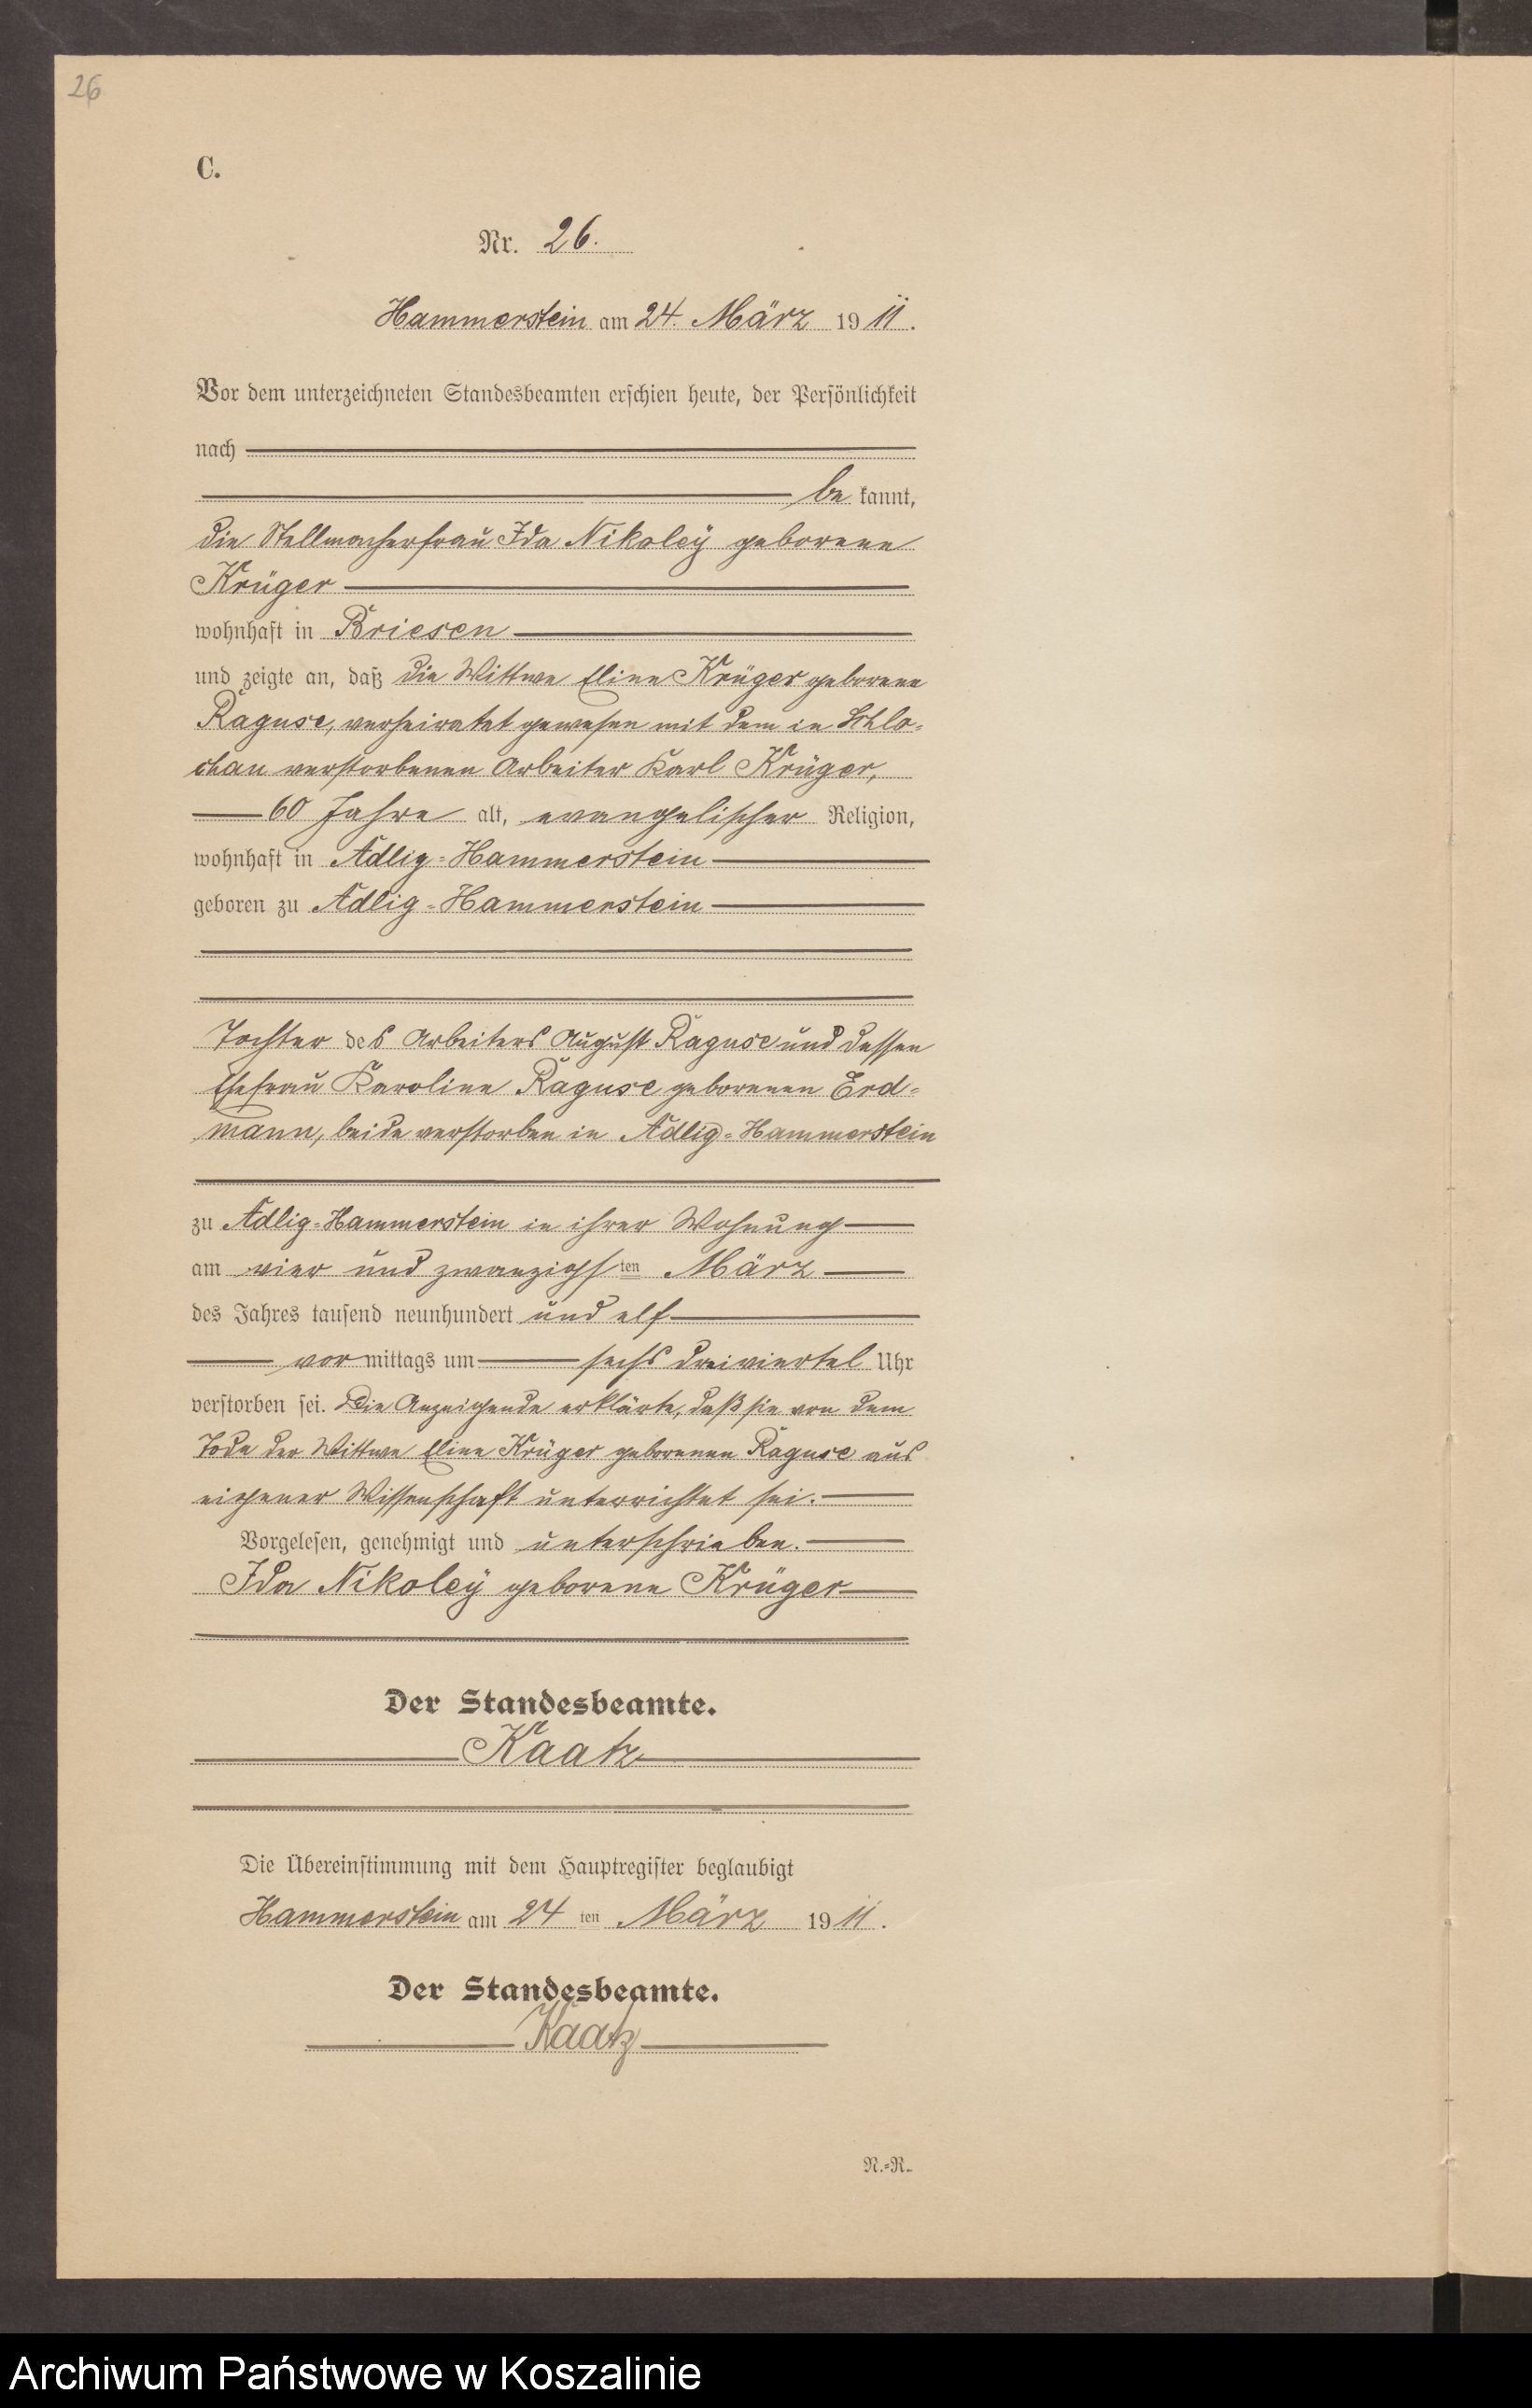 26
C.
Nr. 26.
Hammerstein am 24. März 1911.
Vor dem unterzeichneten Standesbeamten erschien heute, der Persönlichkeit
nach
be kannt,
die Stellmacherfrau Ida Nikoley geborene
Krüger
wohnhaft in Briesen
und zeigte an, daß die Wittwe Eline Krüger geborene
Raguse, verheiratet gewesen mit dem in Schlo-
chau verstorbenen Arbeiter Karl Krüger,
60 Jahre alt, evangelischer Religion,
wohnhaft in Adlig-Hammerstein
geboren zu Adlig-Hammerstein
Tochter des Arbeiters August Raguse und dessen
Ehefrau Karoline Raguse geborenen Erd-
mann, beide verstorben in Adlig-Hammerstein
zu Adlig-Hammerstein in ihrer Wohnung
am vier und zwanzigsten März
des Jahres tausend neunhundert und elf
vormittags um sechs dreiviertel Uhr
verstorben sei. Die Anzeigende erklärte, daß sie von dem
Tode der Wittwe Eline Krüger geborenen Raguse aus
eigener Wissenschaft unterrichtet sei.
Vorgelesen, genehmigt und unterschrieben.
Ida Nikoley geborene Krüger
Der Standesbeamte.
Kaatz
Die Übereinstimmung mit dem Hauptregister beglaubigt
Hammerstein am 24ten März 1911.
Der Standesbeamte.
Kaatz
N.-R.
Archiwum Państwowe w Koszalinie